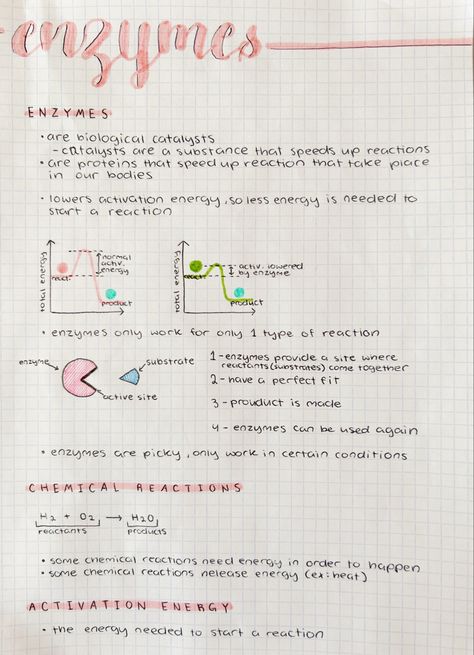 enzymes
ENZYMES
• are biological catalysts
- catalysts are a substance that speeds up reactions
• are proteins that speed up reaction that take place
in our bodies
• lowers activation energy, so less energy is needed to
start a reaction
total energy
react.
normal
activ.
energy
product
total energy
react.
activ. lowered
by enzyme
product
• enzymes only work for only 1 type of reaction
enzyme
substrate
active site
1 - enzymes provide a site where
reactants (substrates) come together
2 - have a perfect fit
3 - prouduct is made
4 - enzymes can be used again
• enzymes are picky, only work in certain conditions
CHEMICAL REACTIONS
H₂ + O₂ → H₂O
reactants
products
• some chemical reactions need energy in order to happen
• some chemical reactions release energy (ex: heat)
ACTIVATION ENERGY
• the energy needed to start a reaction